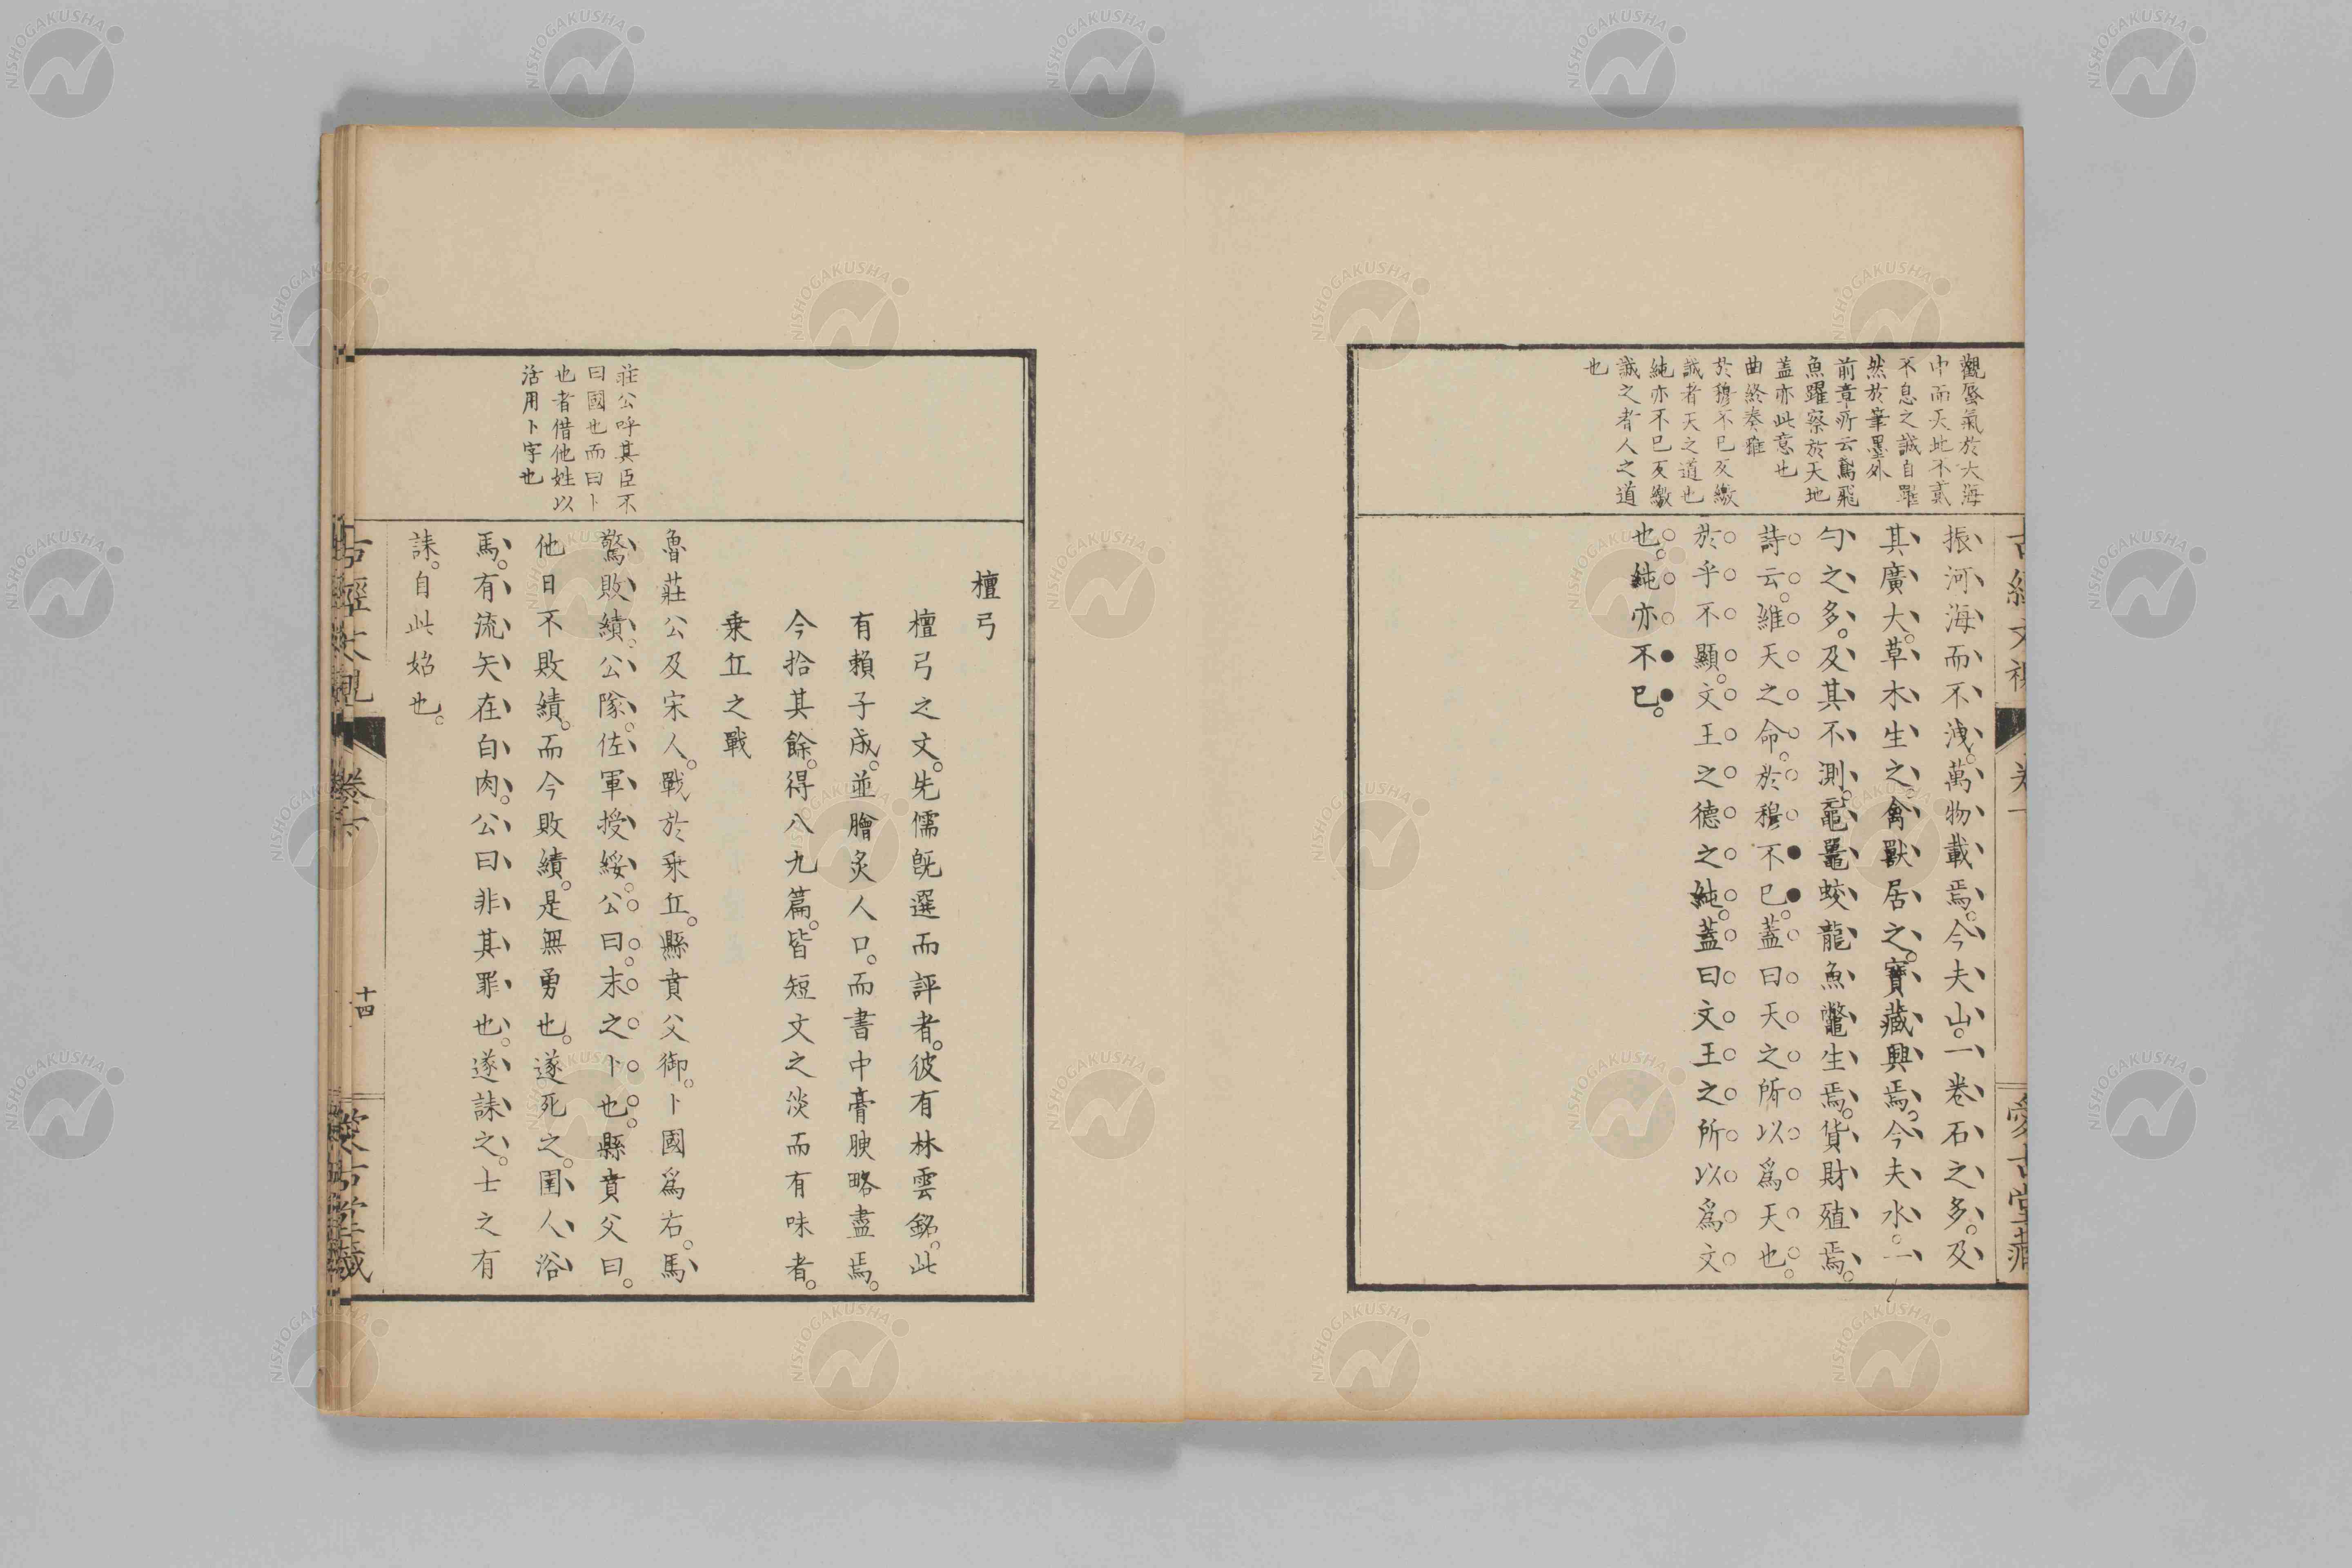 觀蜃氣於大海
中而天地不貳
不息之誠自躍
然於筆墨外
前章所云鳶飛
魚躍察於天地
蓋亦此意也
曲終奏雅
於穆不已反繳
誠者天之道也
純亦不已反繳
誠之者人之道
也
振河海而不洩。萬物載焉。今夫山。一卷石之多。及
其廣大。草木生之。禽獸居之。寶藏興焉。今夫水。一
勺之多。及其不測。黿鼉蛟龍魚鼈生焉。貨財殖焉。
詩云。維天之命。於穆不已。蓋曰天之所以爲天也。
於乎不顯。文王之德之純。蓋曰文王之所以爲文
也。純亦不已。
愛古堂藏
莊公呼其臣不
曰國也而曰卜
也者借他姓以
活用卜字也
檀弓
檀弓之文。先儒既選而評者。彼有林雲銘。此
有賴子成。並膾炙人口。而書中膏腴略盡焉。
今拾其餘。得八九篇。皆短文之淡而有味者。
乗丘之戰
魯莊公及宋人。戰於乗丘。縣賁父御。卜國爲右。馬
驚敗績。公隊。佐軍授綏。公曰。末之卜也。縣賁父曰。
他日不敗績。而今敗績。是無勇也。遂死之。圉人浴
馬。有流矢在白肉。公曰非其罪也。遂誄之。士之有
誄。自此始也。
古經文視 卷下 十四 愛古堂藏